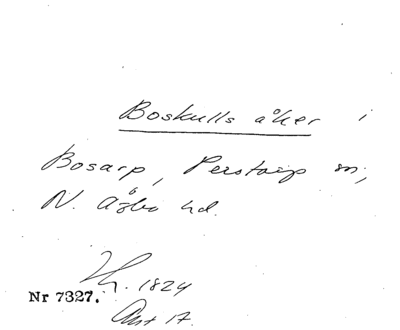 Boskulls åker i
Bosarp, Perstorp sn,
N. Åsbo hd.
1824
Nr 7327.
17.